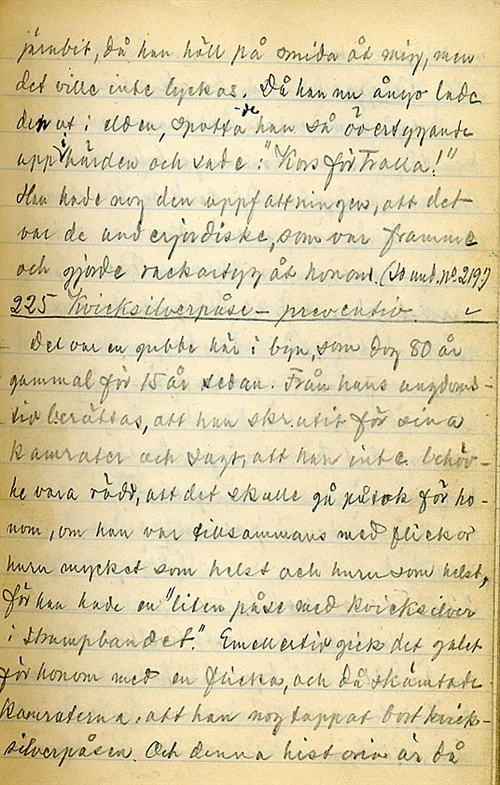 järnbit, då han höll på smida åt mig, men
det ville inte lyckas. Då han nu ånyo lade
den ut i elden, spottade han så övertygande
upp i härden och sade: "Kors för Tralla!"
Han hade nog den uppfattningen, att det
var de underjordiske, som var framme
och gjorde rackartyg åt honom. (Jo und. nº 219?)
225 Kvicksilverpåse - preventiv.
Det var en gubbe här i byn, som dog 80 år
gammal för 15 år sedan. Från hans ungdoms-
tid berättas, att han skrutit för sina
kamrater och sagt, att han inte behöv-
he vara rädd, att det skulle gå på tok för ho-
nom, om han var tillsammans med flickor
huru mycket som helst och huru som helst,
för han hade en "liten påse med kvicksilver
i strumpbandet." Emellertid gick det galet
för honom med en flicka, och då skämtade
kamraterna, att han nog tappat bort kvick-
silverpåsen. Och denna historia är då